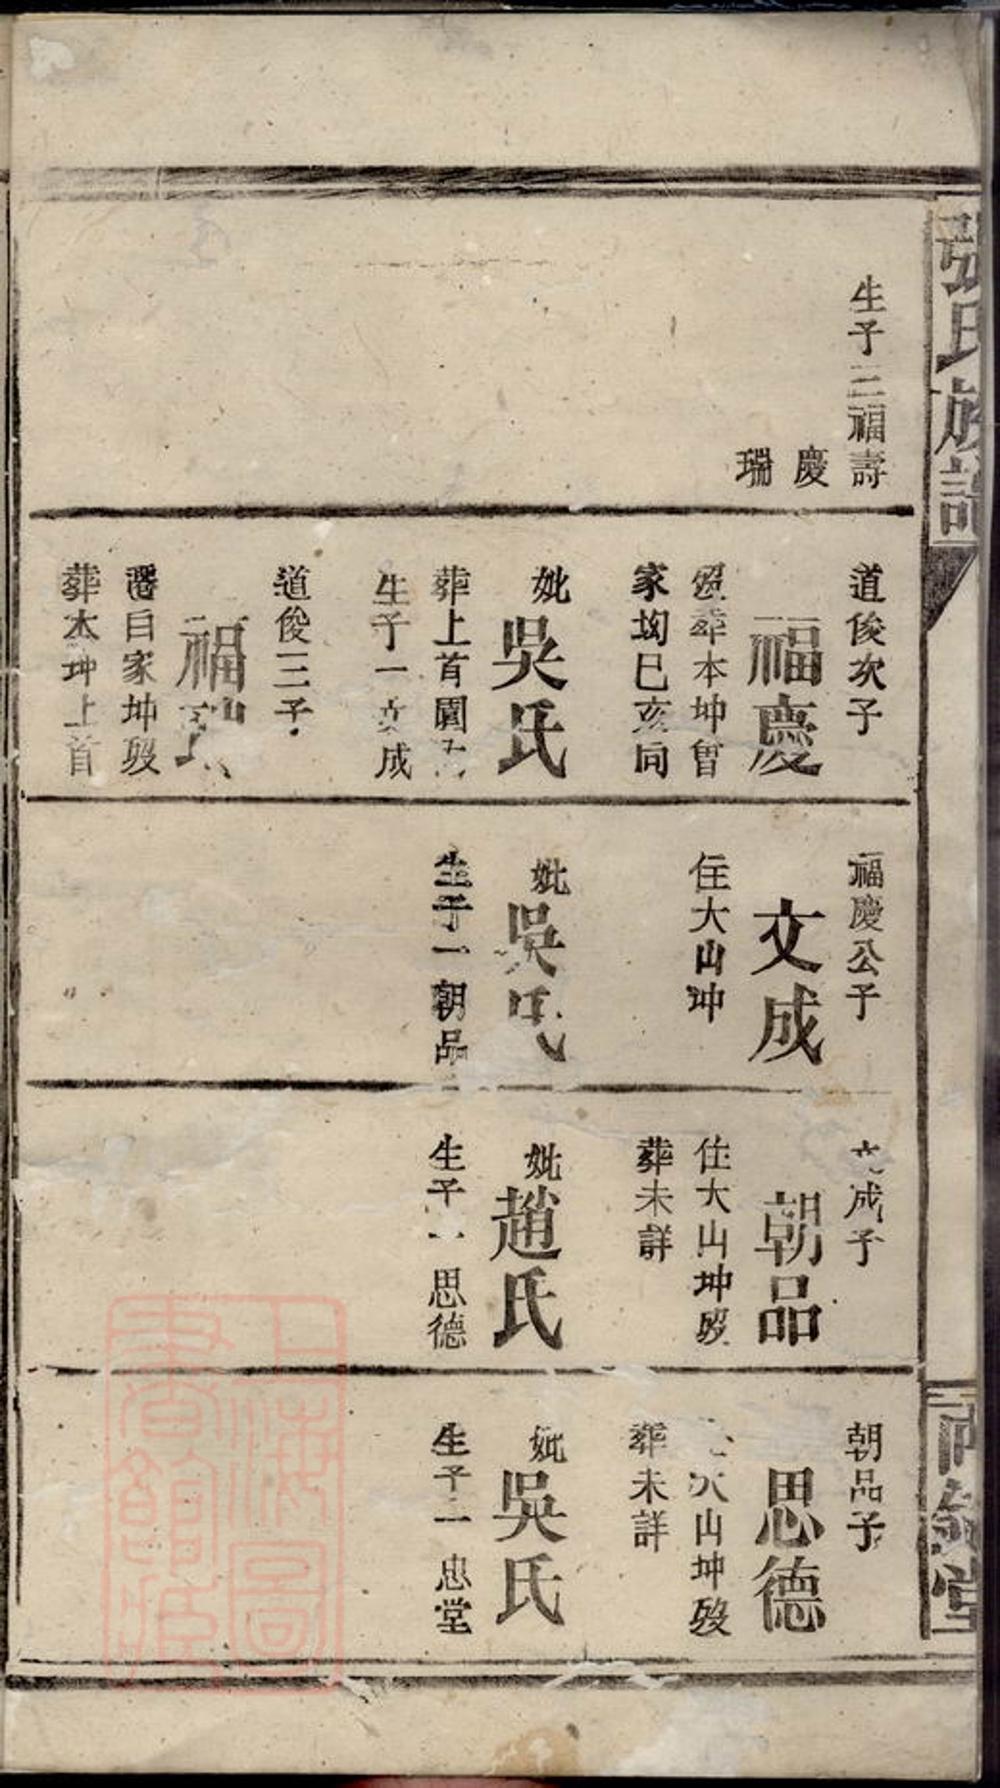 張氏族譜
生子三福壽
慶
瑞
道俊次子
福慶
歿葬本坤曾
家坳巳亥同
妣吳氏
葬上首園
生子一文成
道俊三子
福瑞
遷自家坤歿
葬本坤上首
福慶公子
文成
住大山冲
妣吳氏
生子一朝品
文成子
朝品
住大山坤歿
葬未詳
妣趙氏
生子一思德
朝品子
思德
大山坤歿
葬未詳
妣吳氏
生子一忠堂
堂
上海圖書館藏